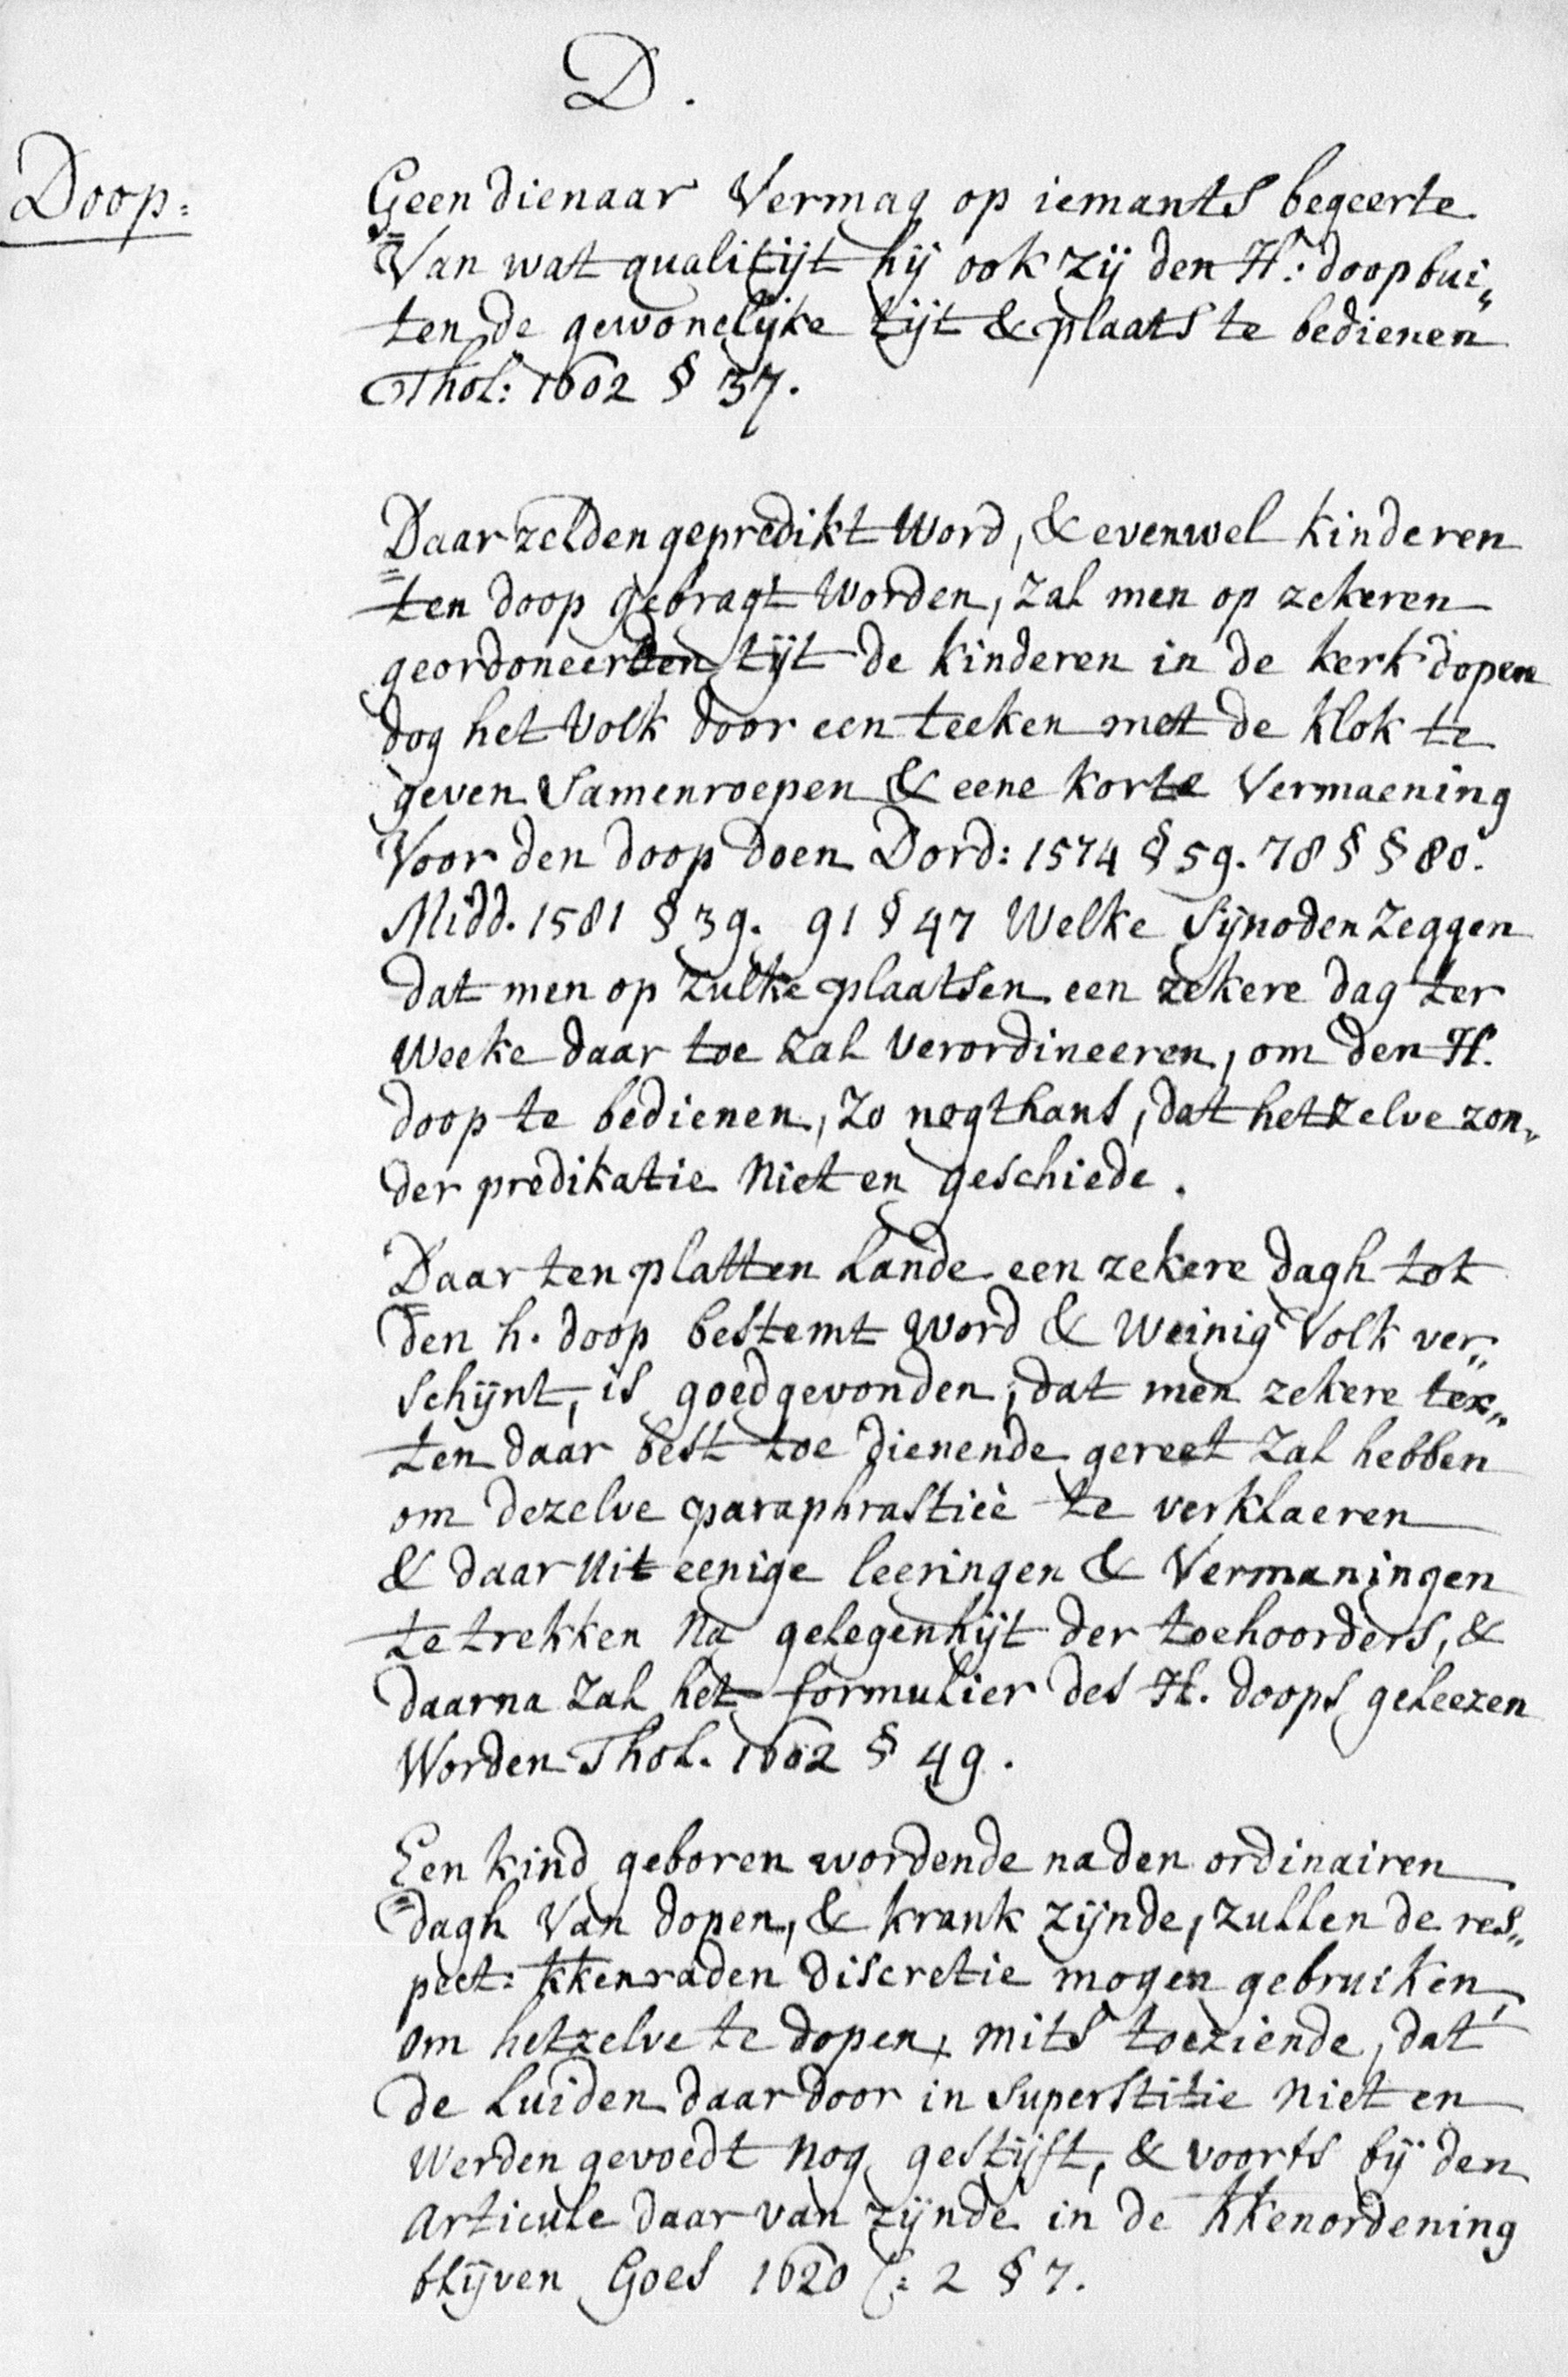 D.
Doop:
Geen dienaar Vermag op iemants begeerte
Van wat qualitijt hij ook zij den H: doop bui„
ten de gewonelijke tijt & plaats te bedienen
Thol: 1602 § 37.
Daar zelden gepredikt Word, & evenwel kinderen
ten doop gebragt Worden, zal men op zekeren
geordoneerden tijt de kinderen in de kerk dopen
dog het Volk door een teeken met de klok te
geven Samenroepen & eene korte Vermaening
Voor den doop doen Dord: 1574 § 59. 78 § § 80.
Midd. 1581 § 39. 91 § 47 Welke Sijnoden Zeggen
dat men op zulke plaatsen een zekere dag ter
Weeke daar toe zal Verordineeren, om den H.
doop te bedienen, Zo nogthans, dat hetzelve zon„
der predikatie Niet en geschiede.
Daar ten platten Lande een zekere dagh tot
den h. doop bestemt Word & Weinig Volk ver„
schijnt, is goedgevonden, dat men zekere tex„
ten daar best toe dienende gereet zal hebben
om dezelve paraphrasticè te verklaeren
& daar uit eenige leeringen & Vermaningen
te trekken Na gelegenhijt der toehoorders, &
daarna zal het formulier des H. doops geleezen
Worden Thol. 1602 § 49.
Een kind geboren wordende na den ordinairen
dagh Van dopen, & krank zijnde, zullen de res„
pect: kkenraden discretie mogen gebruiken,
om hetzelve te dopen, mits toeziende, dat
de Luiden daar door in Superstitie Niet en
Werden gevoedt Nog gestijft, & voorts bij den
Articule daar van zijnde in de kkenordening
blijven Goes 1620 S: 2 § 7.